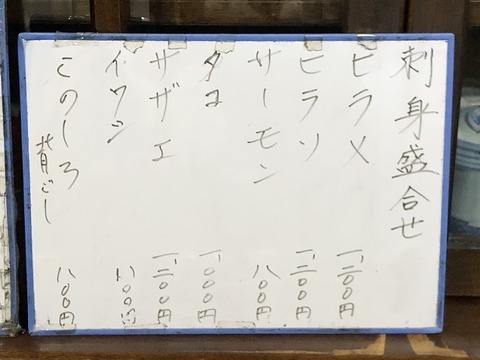 刺身盛合せ
ヒラメ 一、二〇〇円
ヒラソ 一、二〇〇円
サーモン 八〇〇円
タコ 一、〇〇〇円
サザエ 一、二〇〇円
イワシ 八〇〇円
このしろ 背ごし 八〇〇円